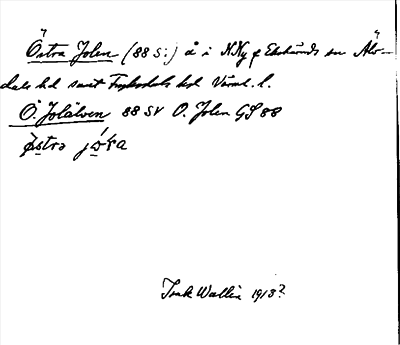 Östra Jolen (88 S:) å i N Ny o Ekshärads sn Älv-
dals hd samt Fryksdals hd Värml. l.
Ö. Jolälven 88 SV Ö. Jolen GS 88
Isak Wallin 1913?